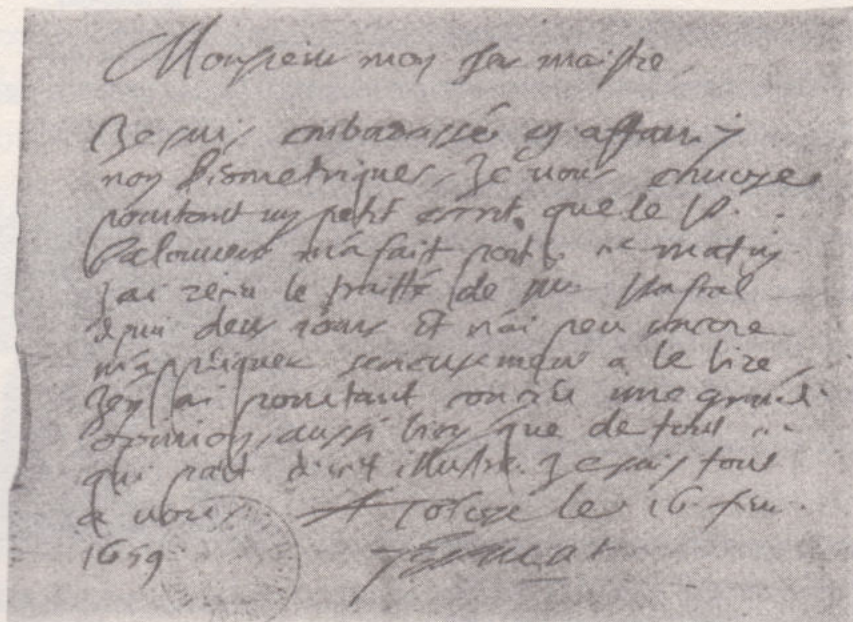 Monsieur mon cher maistre
Je suis embarassé en affaires
non Geometriques, Je vous envoye
pourtant un petit escrit que le P.
m'a fait matin
J'ai receu le traitté de Mr Pascal
depui deus iours Et n'ai peu encore
m'appliquer serieusement a le lire
J'en ai pourtant conceu une grande
opinion, aussi bien que de tout
qui part d'illustre. Je suis tout
a vous A Tolose le 16 feu.
1659 Fermat